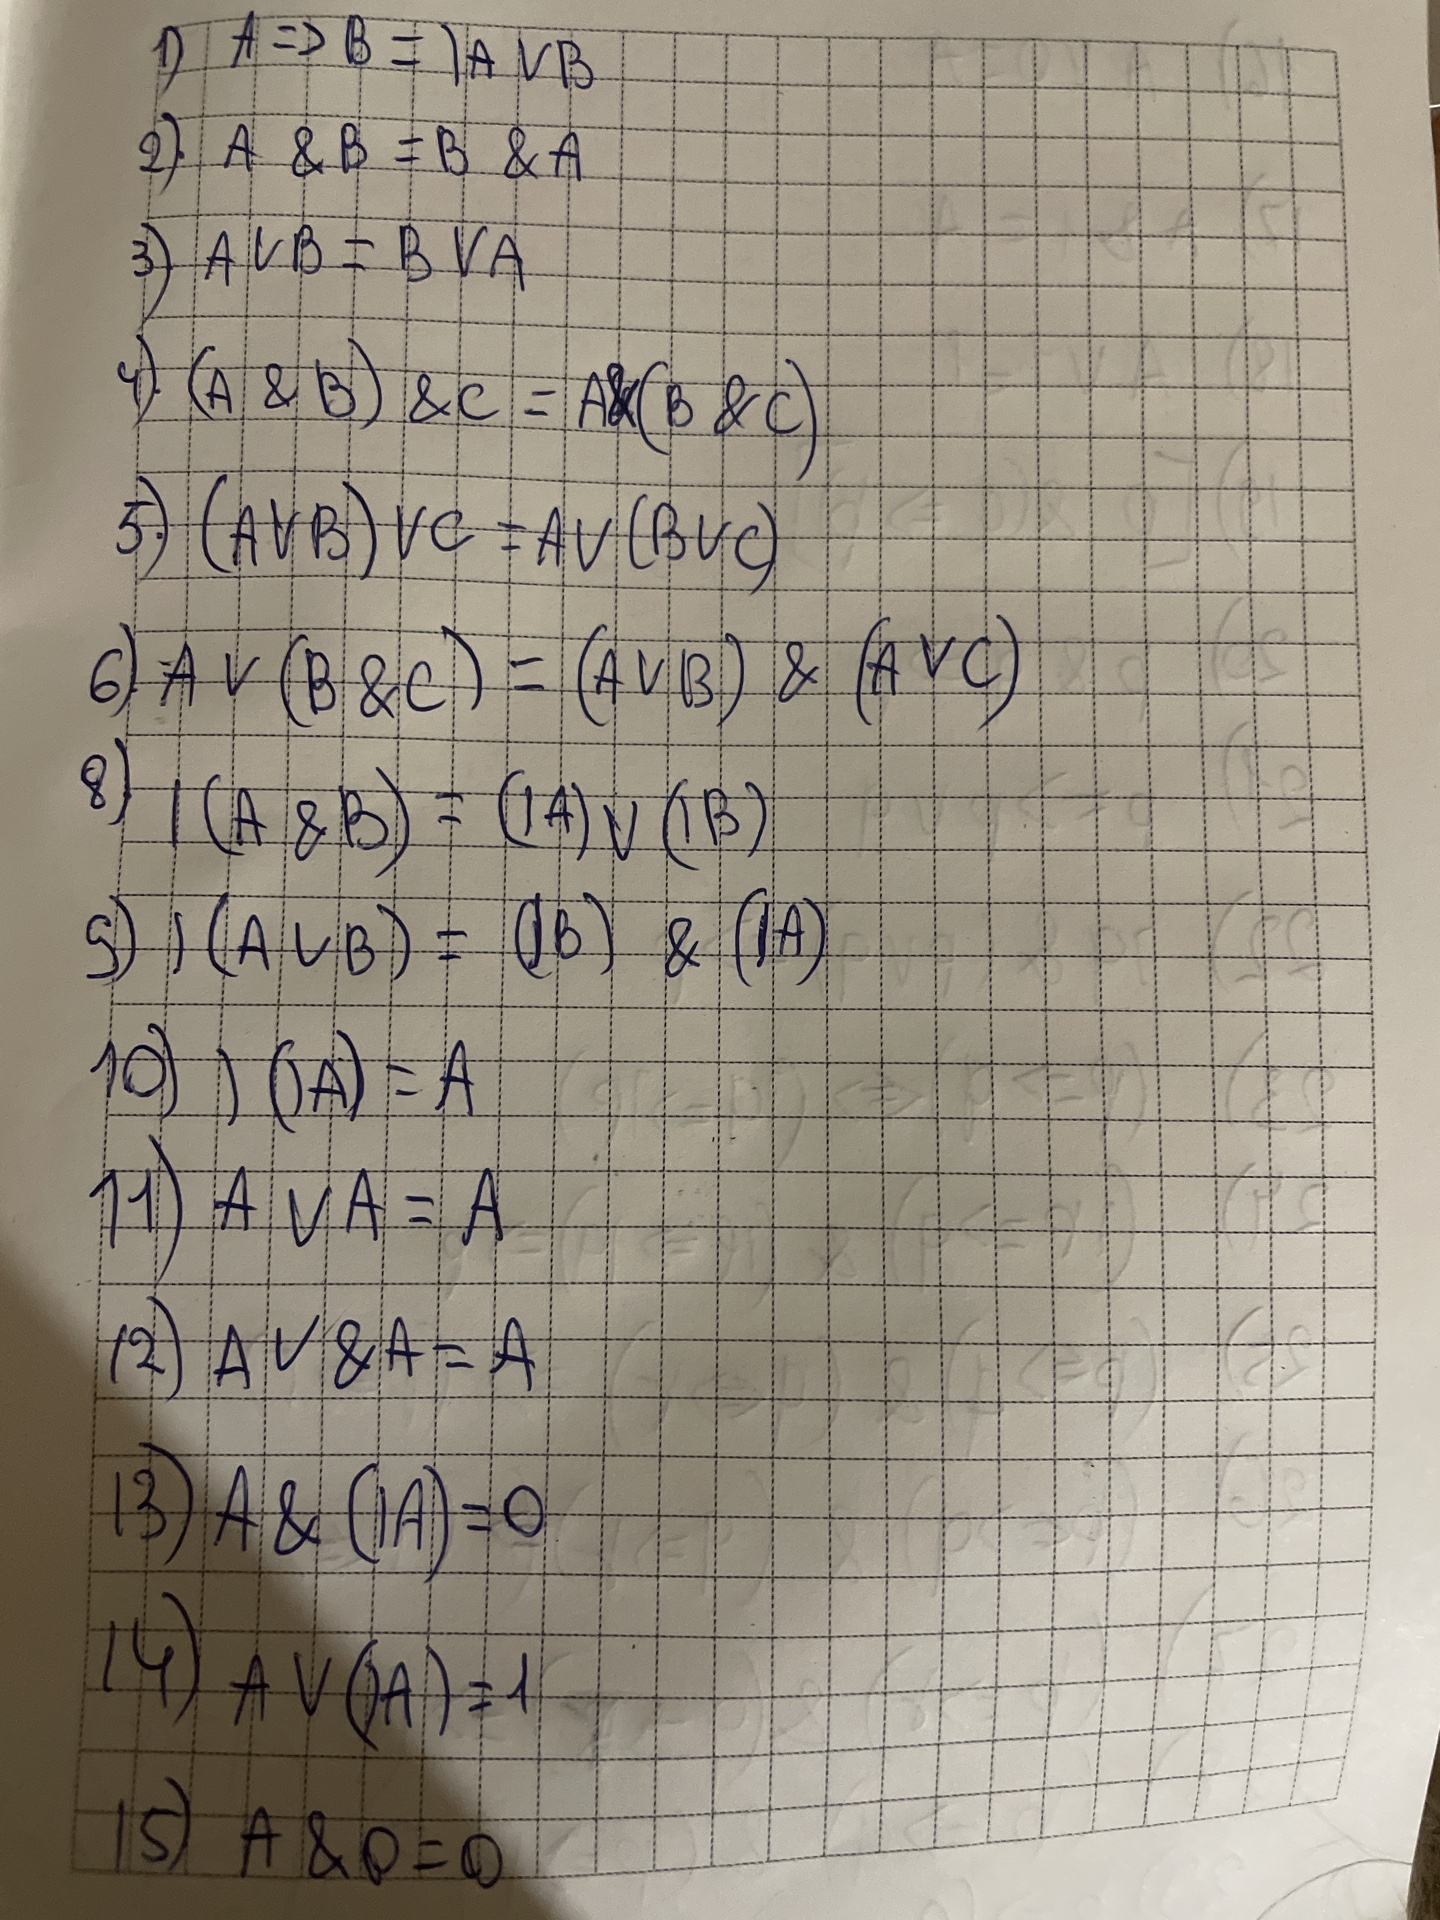 1) A => B = ˥A ∨ B
2) A & B = B & A
3) A ∨ B = B ∨ A
4) (A & B) & C = A & (B & C)
5) (A ∨ B) ∨ C = A ∨ (B ∨ C)
6) A ∨ (B & C) = (A ∨ B) & (A ∨ C)
8) ˥(A & B) = (˥A) ∨ (˥B)
9) ˥(A ∨ B) = (˥B) & (˥A)
10) ˥(˥A) = A
11) A ∨ A = A
12) A ∨ & A = A
13) A & (˥A) = 0
14) A ∨ (˥A) = 1
15) A & 0 = 0